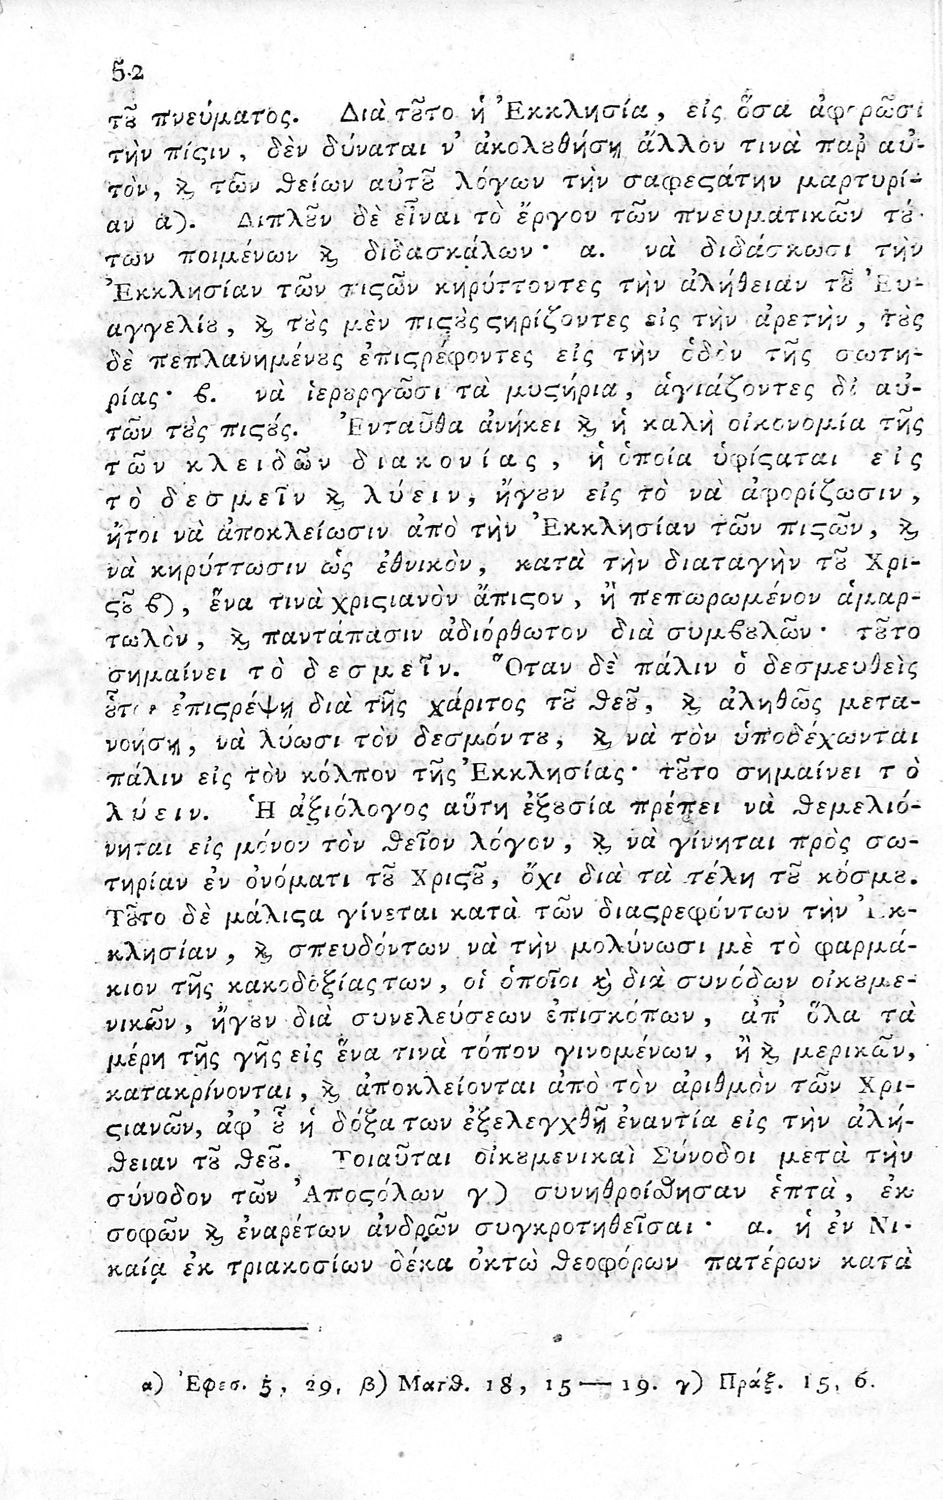 52
τȣ͂ πνεύματος. Διὰ τȣ͂το ἡ Ἐκκλησία, εἰς ὅσα ἀφορῶσι
τὴν πίϛιν, δὲν δύναται ν' ἀκολȣθήσῃ ἄλλον τινὰ παρ' αὐ-
τὸν, ϗ τῶν θείων αὐτȣ͂ λόγων τὴν σαφεϛάτην μαρτυρί-
αν α). Διπλȣ͂ν δὲ εἶναι τὸ ἔργον τῶν πνευματικῶν τȣ́-
των ποιμένων ϗ διδασκάλων· α. νὰ διδάσκωσι τὴν
Ἐκκλησίαν τῶν πιϛῶν κηρύττοντες τὴν ἀλήθειαν τȣ͂ Εὐ-
αγγελίȣ, ϗ τȣ̀ς μὲν πιϛȣ̀ς ϛηρίζοντες εἰς τὴν ἀρετὴν, τȣ̀ς
δὲ πεπλανημένȣς ἐπιϛρέφοντες εἰς τὴν ὁδὸν τῆς σωτη-
ρίας· ϐ. νὰ ἱερȣργῶσι τὰ μυϛήρια, ἁγιάζοντες δι' αὐ-
τῶν τȣ̀ς πιϛȣ́ς. Ἐνταῦθα ἀνήκει ϗ ἡ καλὴ οἰκονομία τῆς
τῶν κλειδῶν διακονίας, ἡ ὁποία ὑφίϛαται εἰς
τὸ δεσμεῖν ϗ λύειν, ἤγȣν εἰς τὸ νὰ ἀφορίζωσιν,
ἤτοι νὰ ἀποκλείωσιν ἀπὸ τὴν Ἐκκλησίαν τῶν πιϛῶν, ϗ
νὰ κηρύττωσιν ὡς ἐθνικὸν, κατὰ τὴν διαταγὴν τȣ͂ Χρι-
ϛȣ͂ ϐ), ἕνα τινὰ χριϛιανὸν ἄπιϛον, ἢ πεπωρωμένον ἁμαρ-
τωλὸν, ϗ παντάπασιν ἀδιόρθωτον διὰ συμϐȣλῶν· τȣ͂το
σημαίνει τὸ δεσμεῖν. Ὅταν δὲ πάλιν ὁ δεσμευθεὶς
ȣ̓͂τος ἐπιϛρέψῃ διὰ τῆς χάριτος τȣ͂ Θεȣ͂, ϗ ἀληθῶς μετα-
νοήσῃ, νὰ λύωσι τὸν δεσμόντȣ, ϗ νὰ τὸν ὑποδέχωνται
πάλιν εἰς τὸν κόλπον τῆς Ἐκκλησίας· τȣ͂το σημαίνει τὸ
λύειν. Ἡ ἀξιόλογος αὕτη ἐξȣσία πρέπει νὰ θεμελιό-
νηται εἰς μόνον τὸν θεῖον λόγον, ϗ νὰ γίνηται πρὸς σω-
τηρίαν ἐν ὀνόματι τȣ͂ Χριϛȣ͂, ὄχι διὰ τὰ τέλη τȣ͂ κόσμȣ.
Τȣ͂το δὲ μάλιϛα γίνεται κατὰ τῶν διαϛρεφόντων τὴν Ἐκ-
κλησίαν, ϗ σπευδόντων νὰ τὴν μολύνωσι μὲ τὸ φαρμά-
κιον τῆς κακοδοξίας των, οἱ ὁποῖοι ϗ διὰ συνόδων οἰκȣμε-
νικῶν, ἤγȣν διὰ συνελεύσεων ἐπισκόπων, ἀπ' ὅλα τὰ
μέρη τῆς γῆς εἰς ἕνα τινὰ τόπον γινομένων, ἢ ϗ μερικῶν,
κατακρίνονται, ϗ ἀποκλείονται ἀπὸ τὸν ἀριθμὸν τῶν Χρι-
ϛιανῶν, ἀφ' ȣ̔͂ ἡ δόξα των ἐξελεγχθῇ ἐναντία εἰς τὴν ἀλή-
θειαν τȣ͂ Θεȣ͂. Τοιαῦται οἰκȣμενικαὶ Σύνοδοι μετὰ τὴν
σύνοδον τῶν Ἀποϛόλων γ) συνηθροίσθησαν ἑπτὰ, ἐκ
σοφῶν ϗ ἐναρέτων ἀνδρῶν συγκροτηθεῖσαι· α. ἡ ἐν Νι-
καίᾳ ἐκ τριακοσίων δέκα ὀκτὼ θεοφόρων πατέρων κατὰ
α) Ἐφεσ. 5, 29, β) Ματθ. 18, 15—19. γ) Πράξ. 15, 6.